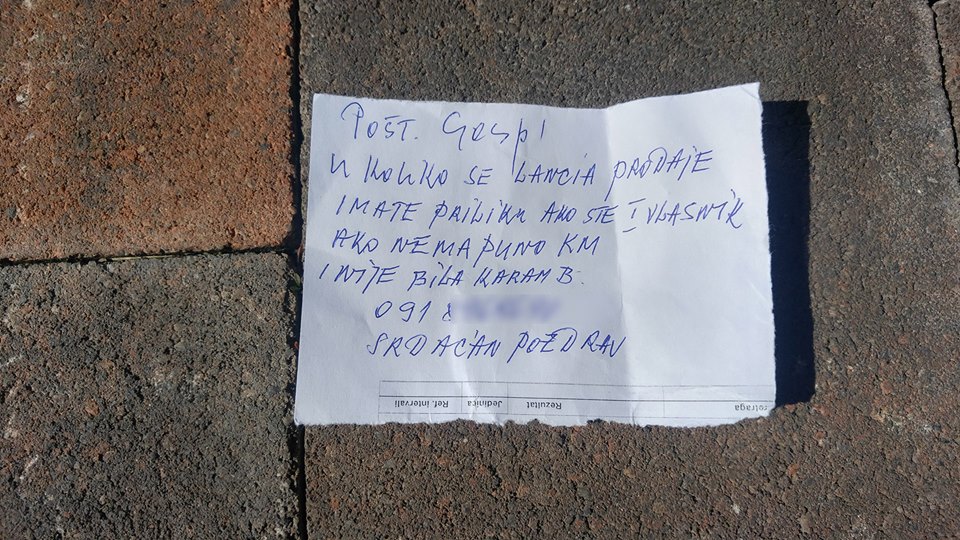 POŠT. Gosp!
U KOLIKO SE LANCIA PRODAJE
IMATE PRILIKU AKO STE I VLASNIK
AKO NEMA PUNO KM
I NIJE BILA KARAMB.
091
SRDAČAN POZDRAV
Ref. intervali Jedinica Rezultat retraga